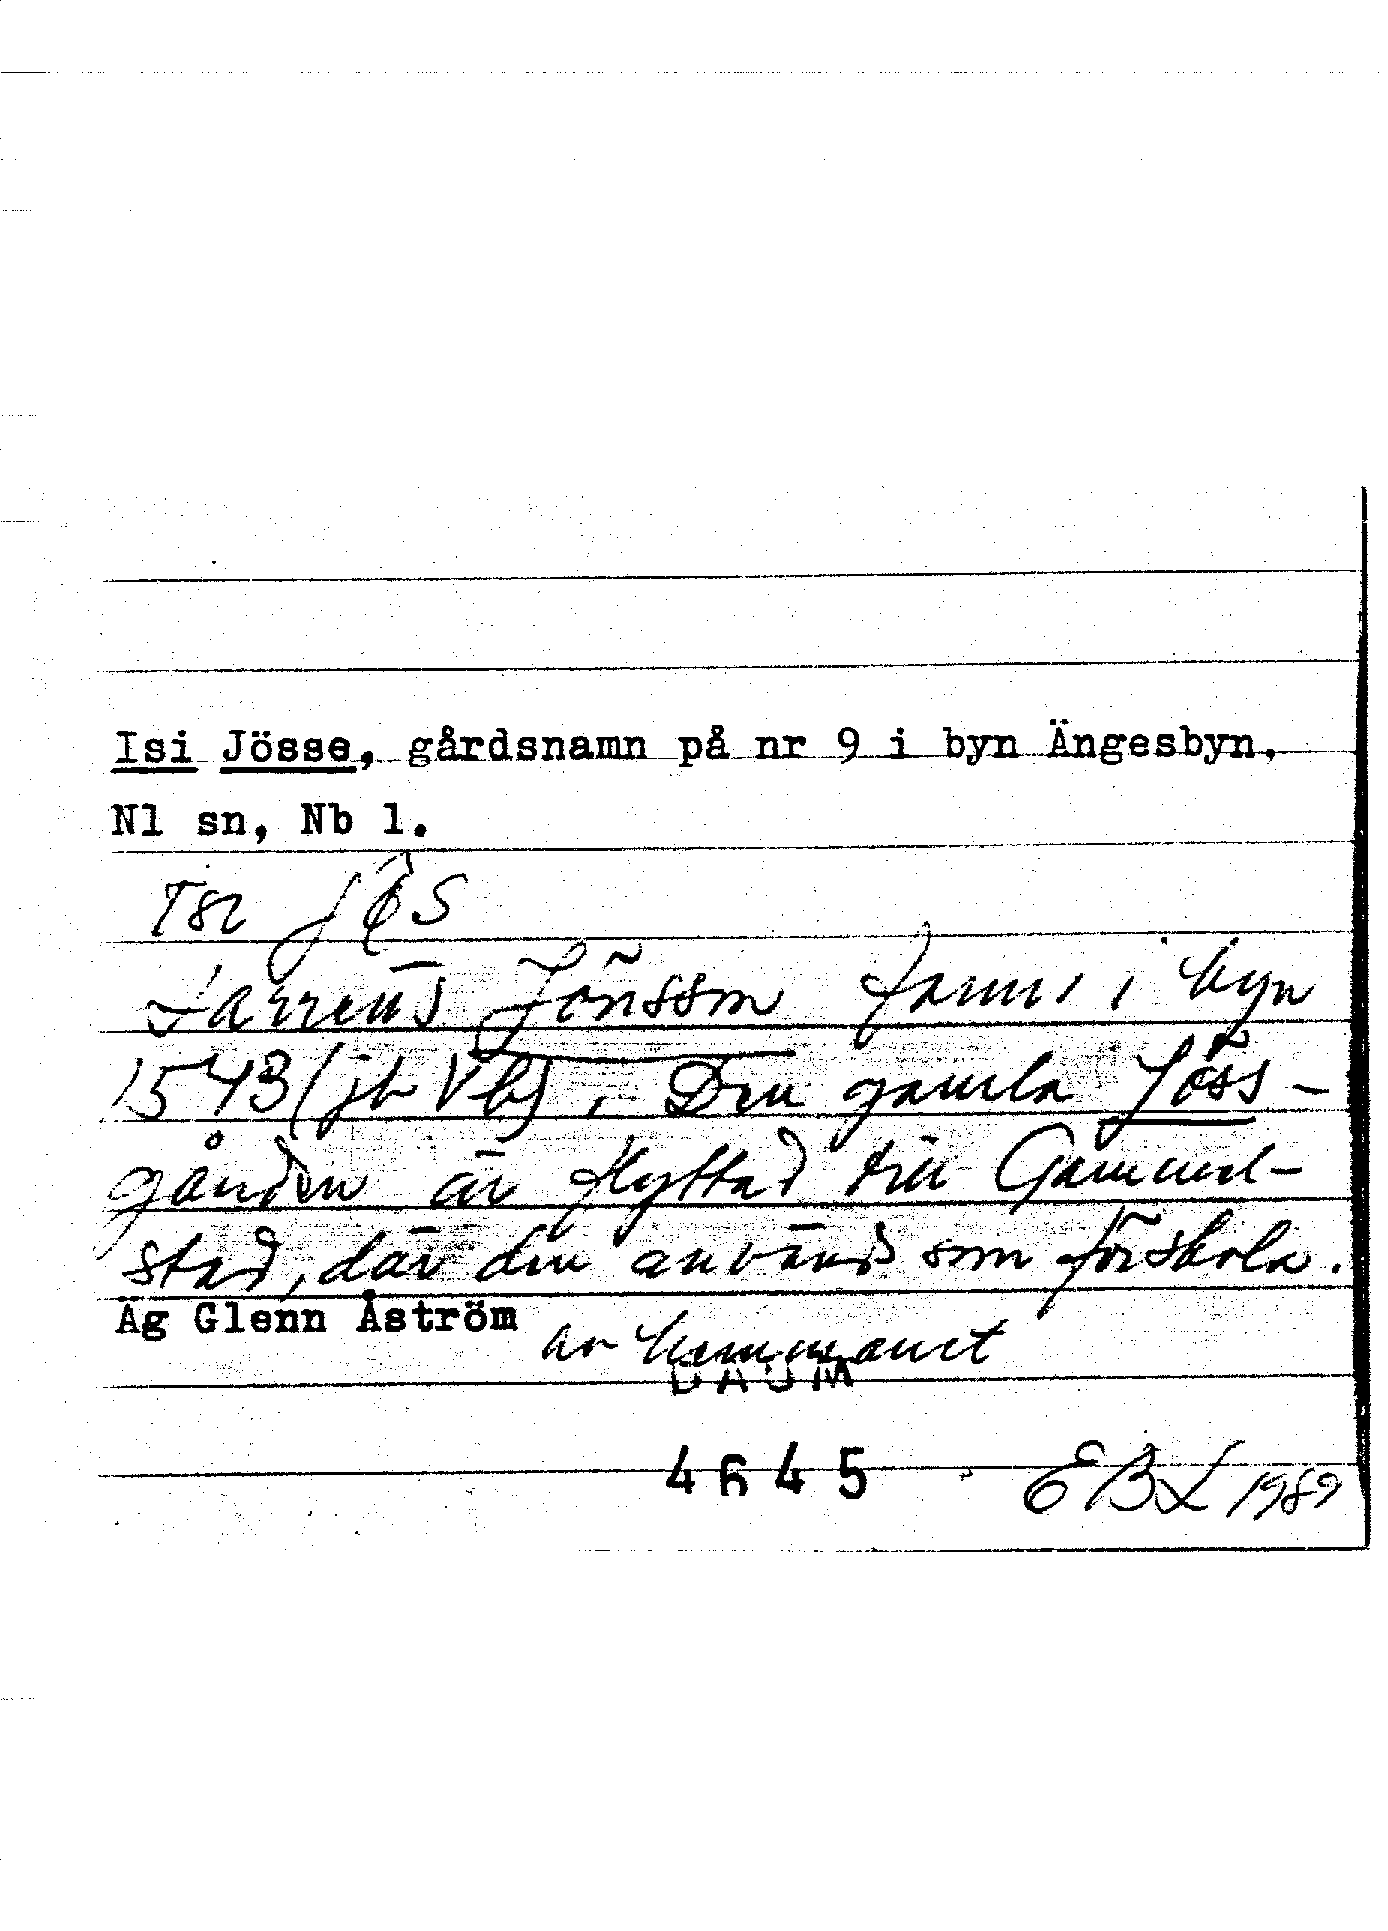 Isi Jösse, gårdsnamn på nr 9 i byn Ängesbyn,
Nl sn, Nb l.
Larrens Jönsson fanns i byn
1543 (jb Vb). Den gamla Jöss-
gården är flyttad till Gammel-
stad, där den använd som förskola.
Äg Glenn Åström
av kommunet
DAUM
4645
EBL 1989